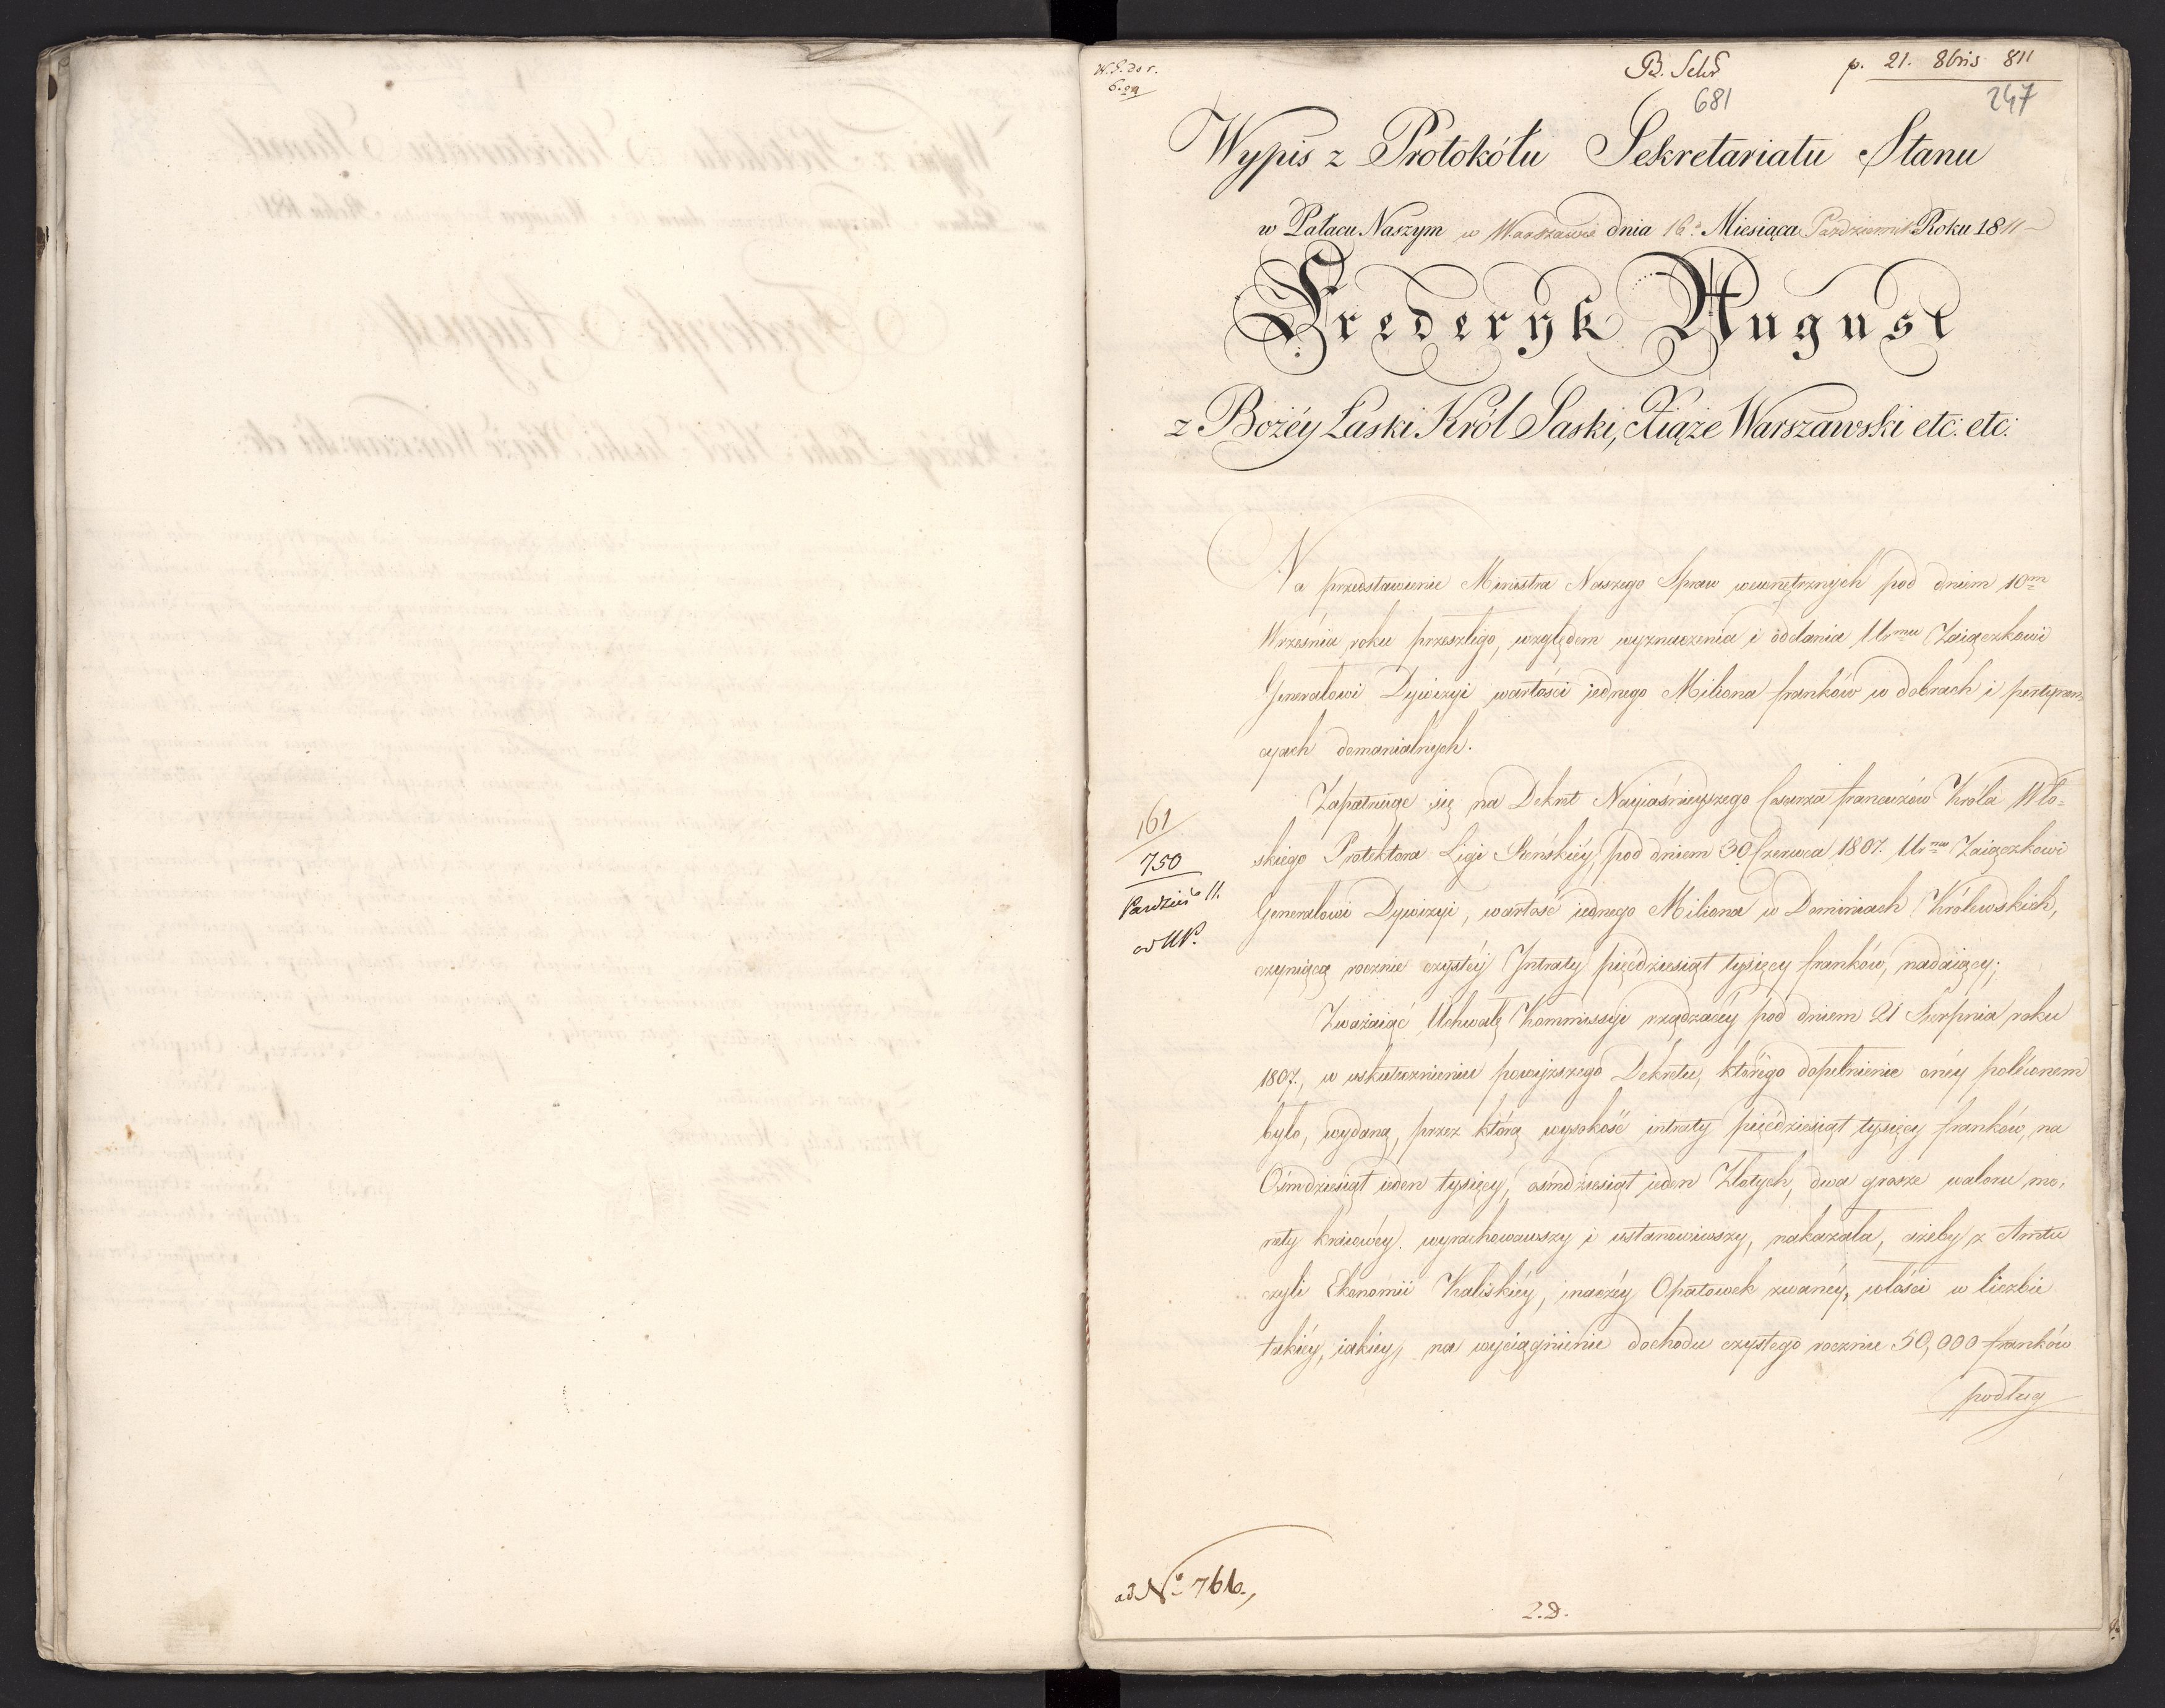 B. Sekr p. 21. 8bris 811
681 247
Wypis z Protokółu Sekretariatu Stanu
w Pałacu Naszym w Warszawie dnia 16º Miesiąca Październik Roku 1811
Frederyk August
z Bożéy Łaski Król Saski, Xiąże Warszawski etc: etc:
Na przedstawienie Ministra Naszego Spraw wewnętrznych pod dniem 10m
Września roku przeszłego, względem wyznaczenia i oddania Urmu Zaiączkowi
Generałowi Dywizyi wartości iednego Miliona franków w dobrach i pertynen=
cyach domanialnych.
Zapatruiąc się na Dekret Nayiaśnieyszego Cesarza francuzów Króla Wło=
skiego Protektora Ligi Reńskiéy, pod dniem 30 Czerwca 1807. Urmu Zaiączkowi
Generałowi Dywizyi, wartość iednego Miliona w Dominiach Królewskich,
czyniącą rocznie czystéy Intraty pięćdziesiąt tysięcy franków, nadaiący;
Zważaiąc Uchwałę Kommissyi rządzącéy pod dniem 21 Sierpnia roku
1807., w uskutecznieniu powyższego Dekretu, którego dopełnienie onéy poléconem
było, wydaną, przez którą wysokość intraty pięćdziesiąt tysięcy franków, na
Ośmdziesiąt ieden tysięcy, ośmdziesiąt ieden Złotych, dwa grosze waloru mo=
nety kraiowéy. wyrachowawszy i ustanowiwszy, nakazała, ażeby z Amtu
czyli Ekonomii Kaliskiéy, inaczéy Opatowek zwanéy, włości w liczbie
takiéy, iakiéy, na wyciągnienie dochodu czystego rocznie 50,000 franków
podług
161
750
Paździer 11.
ad Nº 766.,
2.D.